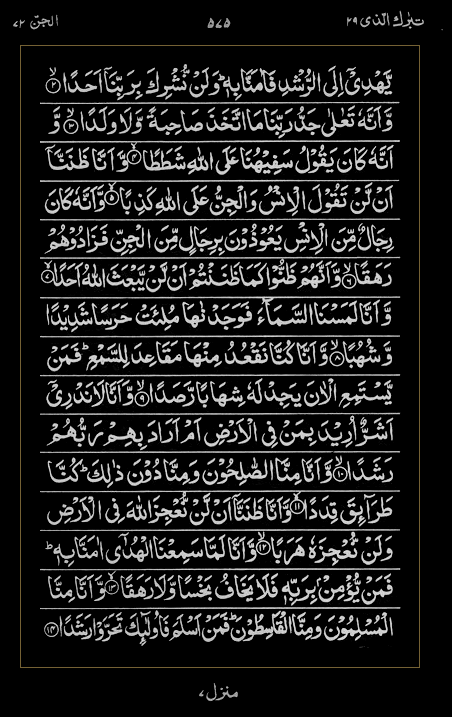 تبٰرك الذی ۲۹ ۵۷۵ الجنّ ۷۲
يَّهْدِيْۤ اِلَى الرُّشْدِ فَاٰمَنَّا بِهٖ ؕ وَلَنْ نُّشْرِكَ بِرَبِّنَاۤ اَحَدًا ۙ﴿۲﴾
وَّاَنَّهٗ تَعٰلٰى جَدُّ رَبِّنَا مَا اتَّخَذَ صَاحِبَةً وَّلَا وَلَدًا ۙ﴿۳﴾ وَّ
اَنَّهٗ كَانَ يَقُوْلُ سَفِيْهُنَا عَلَى اللّٰهِ شَطَطًا ۙ﴿۴﴾ وَّاَنَّا ظَنَنَّاۤ
اَنْ لَّنْ تَقُوْلَ الْاِنْسُ وَالْجِنُّ عَلَى اللّٰهِ كَذِبًا ۙ﴿۵﴾ وَّاَنَّهٗ كَانَ
رِجَالٌ مِّنَ الْاِنْسِ يَعُوْذُوْنَ بِرِجَالٍ مِّنَ الْجِنِّ فَزَادُوْهُمْ
رَهَقًا ۙ﴿۶﴾ وَّاَنَّهُمْ ظَنُّوْا كَمَا ظَنَنْتُمْ اَنْ لَّنْ يَّبْعَثَ اللّٰهُ اَحَدًا ۙ﴿۷﴾
وَّاَنَّا لَمَسْنَا السَّمَآءَ فَوَجَدْنٰهَا مُلِئَتْ حَرَسًا شَدِيْدًا
وَّشُهُبًا ۙ﴿۸﴾ وَّاَنَّا كُنَّا نَقْعُدُ مِنْهَا مَقَاعِدَ لِلسَّمْعِ ؕ فَمَنْ
يَّسْتَمِعِ الْاٰنَ يَجِدْ لَهٗ شِهَابًا رَّصَدًا ۙ﴿۹﴾ وَّاَنَّا لَا نَدْرِيْۤ
اَشَرٌّ اُرِيْدَ بِمَنْ فِي الْاَرْضِ اَمْ اَرَادَ بِهِمْ رَبُّهُمْ
رَشَدًا ۙ﴿۱۰﴾ وَّاَنَّا مِنَّا الصّٰلِحُوْنَ وَمِنَّا دُوْنَ ذٰلِكَ ؕ كُنَّا
طَرَآئِقَ قِدَدًا ۙ﴿۱۱﴾ وَّاَنَّا ظَنَنَّاۤ اَنْ لَّنْ نُّعْجِزَ اللّٰهَ فِي الْاَرْضِ
وَلَنْ نُّعْجِزَهٗ هَرَبًا ۙ﴿۱۲﴾ وَّاَنَّا لَمَّا سَمِعْنَا الْهُدٰۤى اٰمَنَّا بِهٖ ؕ
فَمَنْ يُّؤْمِنْۢ بِرَبِّهٖ فَلَا يَخَافُ بَخْسًا وَّلَا رَهَقًا ۙ﴿۱۳﴾ وَّاَنَّا مِنَّا
الْمُسْلِمُوْنَ وَمِنَّا الْقٰسِطُوْنَ ؕ فَمَنْ اَسْلَمَ فَاُولٰٓئِكَ تَحَرَّوْا رَشَدًا ﴿۱۴﴾
منزل ۷